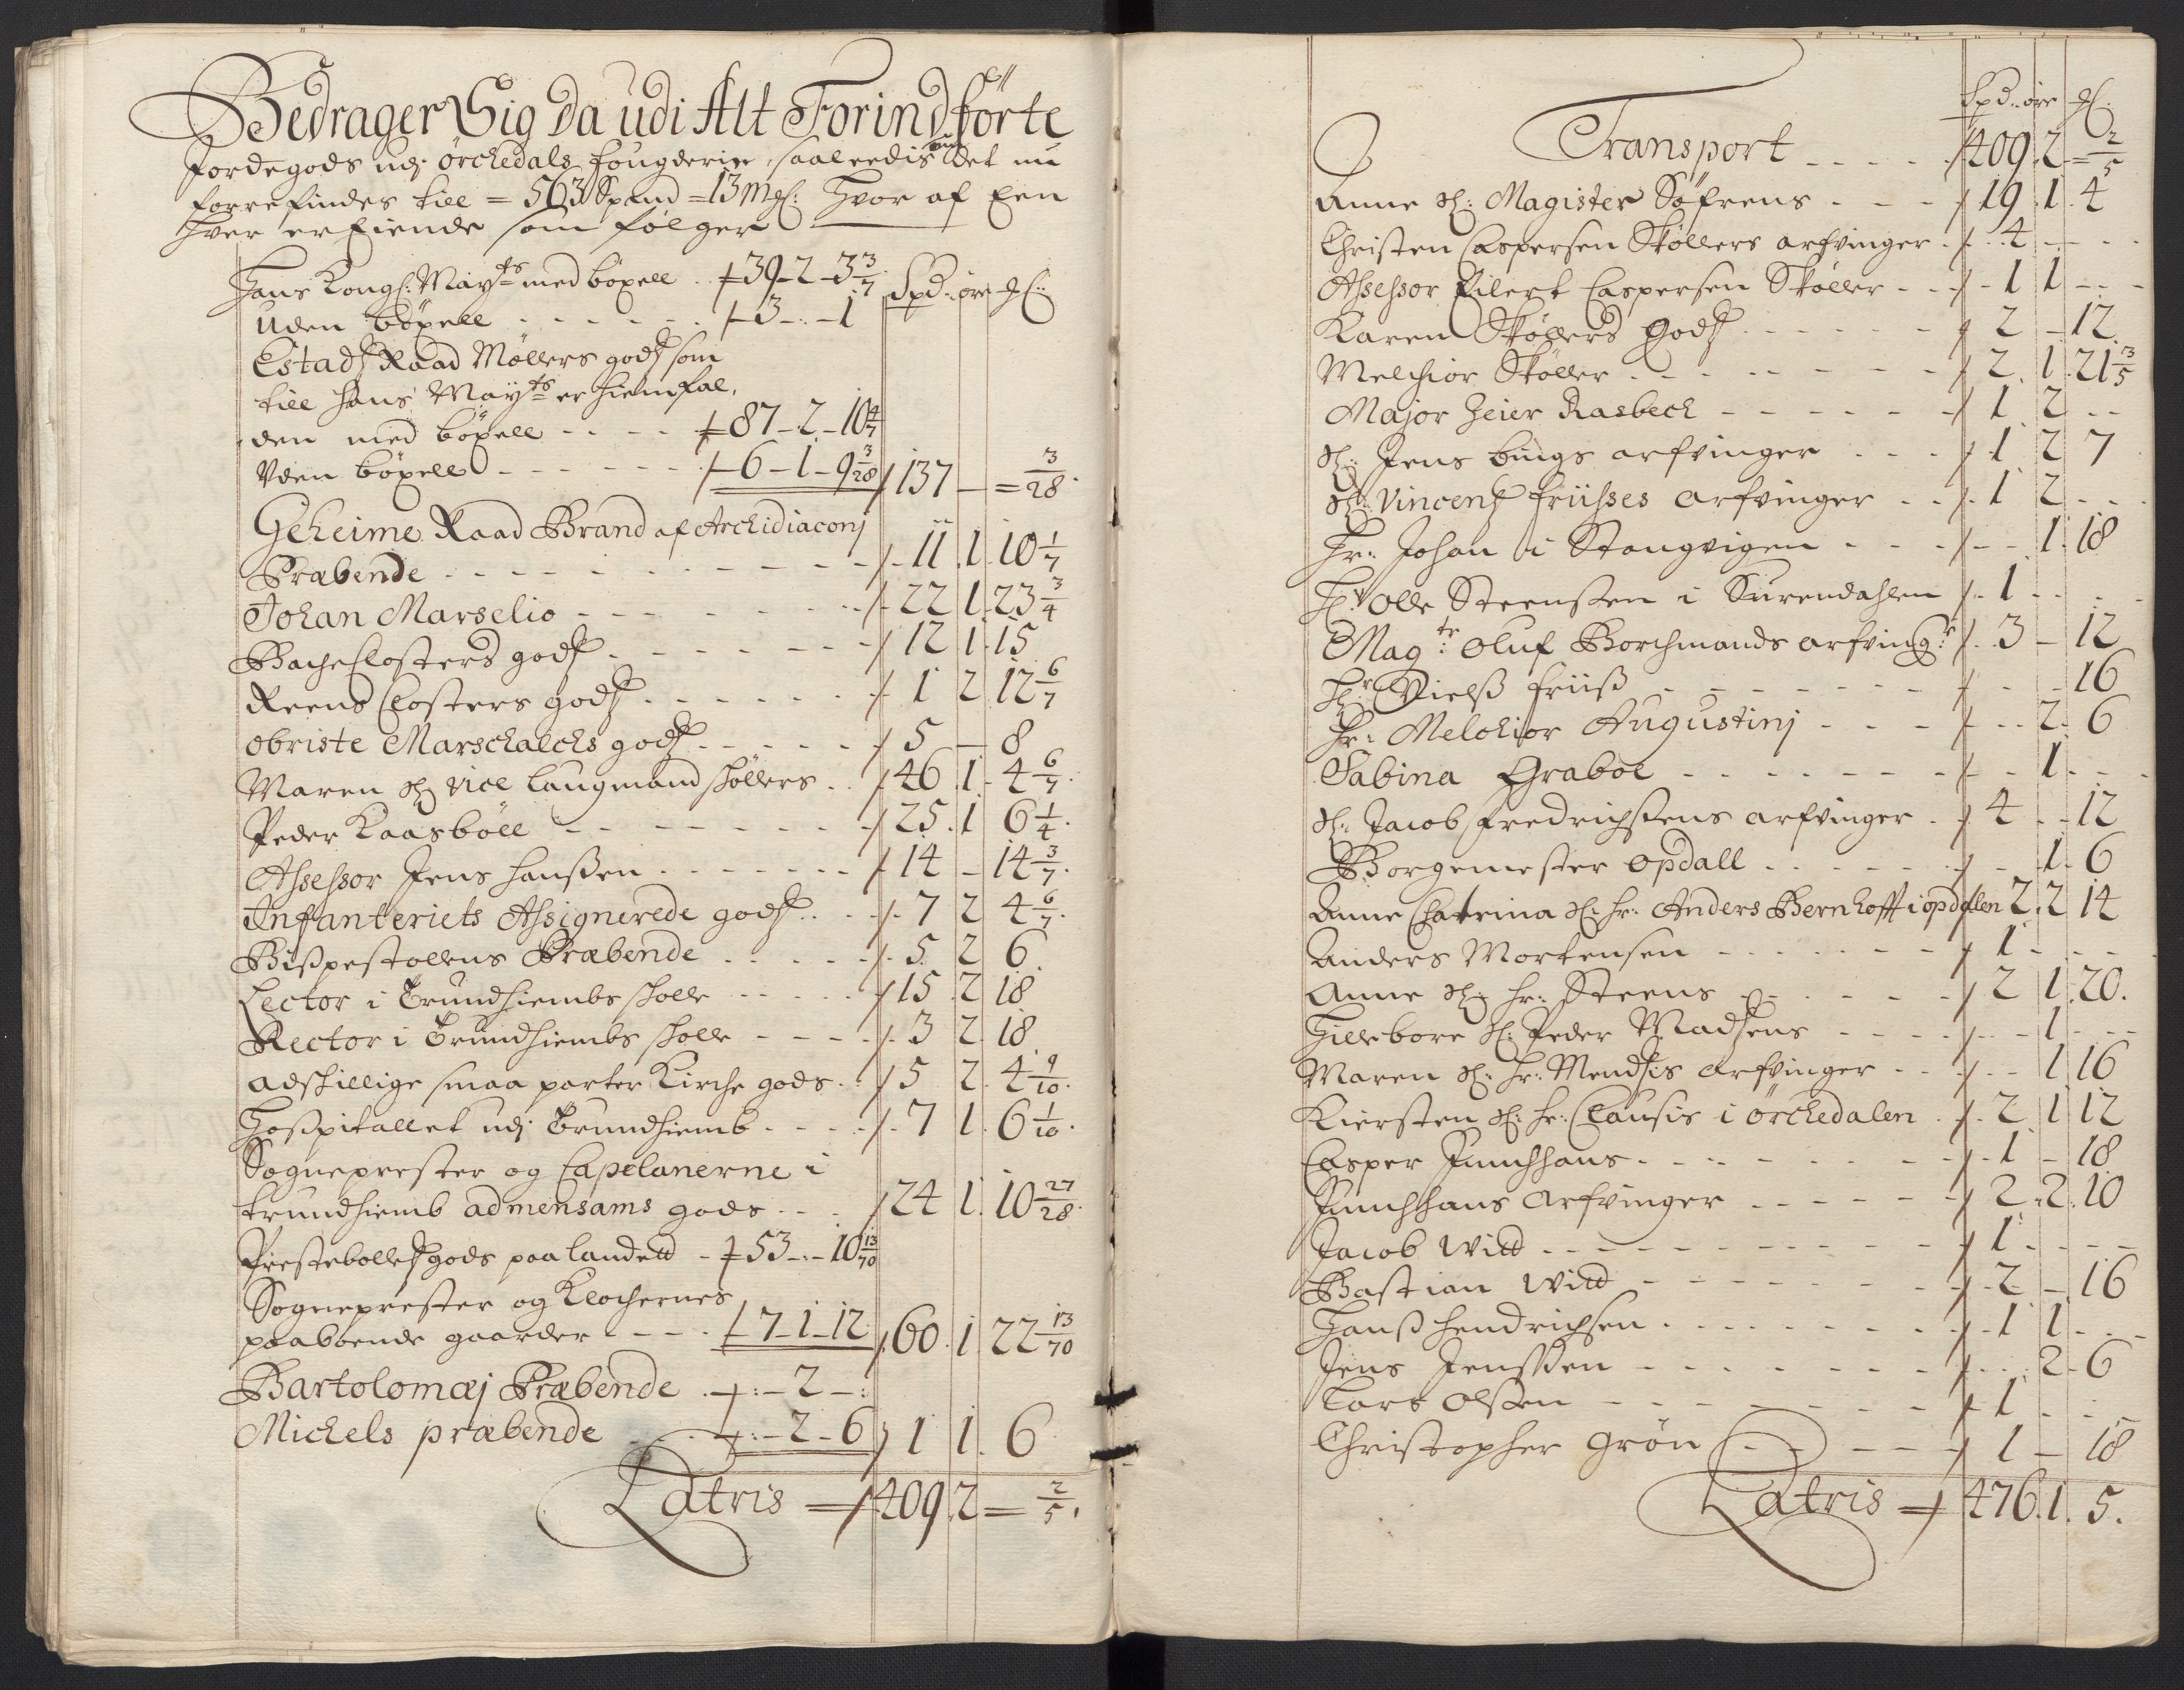 Bedrager Sig Da udi Alt Forindförte
Jordegods udj örchedals fougderie, saaleedis som det nu
forrefindes till = 563 Spand = 13 mkl: Hvor af Een
hver er Eiende som följger
Hans Kongl: Mayts med böxell .. 39 - 2 - 3 3/7 Spd: öre ml:
Uden böxell - - - - - 3 - : - 1
Estads Raad Möllers gods som
till hans Mayts er hiemfal,
den med böxell - - - - 87 - 2 - 10 4/7
Uden böxell - - - - - - 6 - 1 - 9 3/28 137 - = 3/28
Geheime Raad Brand af Archidiaconj
Præbende - - - - - - - 11 1 10 1/7
Johan Marselio - - - - - - 22 1 23 3/4
Bache Closters gods - - - - - 12 1 15
Reens Closters gods - - - - - 1 2 12 6/7
obriste Marschalchs gods - - - - - 5 - 8
Maren Sl: vice laugmand sköllers . . 46 1 4 6/7
Peder Kaasböll - - - - - - 25 1 6 1/4
Assessor Jens hanssen - - - - - 14 - 14 3/7
Infanteriets Assignerede gods . . . 7 2 4 6/7
Bispestollens Præbende . . . . 5 2 6
Lector i Trundhiembs skolle - - - - 15 2 18
Rector i Trundhiembs skolle - - - - 3 2 18
adskillige smaa parter Kirche gods . . 5 2 4 9/10
Hospitallet udj Trundhiemb - - - - 7 1 6 1/10
Sogneprester og Capelanerne i
trundhiemb admensams gods - - - 24 1 10 27/28
Prestebollets gods paa landett - 53 - : - 10 13/70
Sogneprester og Klochernes
paaboende gaarder - - - - 7 - 1 - 12 60 1 22 13/70
Bartolomæj Præbende . - : - 2 - :
Michels præbende - - : - 2 - 6 1 1 6
Latris = 409 2 = 2/5
Spd: öre ml:
Transport - - - - 409 2 = 2/5
Anne Sl: Magister Söfrens - - - 19 1 4
Christen Caspersen Sköllers arfvinger . 4 - - -
Assessor Eilert Caspersen Sköller - - - 1 1 - -
Karen Sköllers Gods - - - - - 2 - 12
Melchior Sköller - - - - - - - 2 1 21 3/5
Major Heier Rasbech - - - - - - 1 2 - -
Sl: Jens bings arfvinger - - - 1 2 7
Sl: Vincents friisses arfvinger - - 1 2 - -
Hr: Johan i Stangvigen - - - - - 1 18
Hr: Olle Steenssen i Surendahlen 1 - - -
Magtr: Oluf Borchmands arfvingr: 3 - 12
Hr: Nielss friiss - - - - - - - - 16
Hr: Melchior Augustinj - - - - - 2 6
Sabina Graboe - - - - - - - - 1 - -
Sl: Jacob fredrichsens arfvinger - 4 - 12
Borgemester opdall - - - - - - - 1 6
Anne Chatrina Sl: hr: Anders Bernhofft i opdalen 2 2 14
Anders Mortensen - - - - - - 1 - - -
Anne Sl: hr: Steens - - - - - 2 1 20
Hillebore Sl: Peder Madsens - - - - - 1 - -
Maren Sl: hr: Mendsis arfvinger - - - - 1 16
Kiersten Sl: hr: Clausis i örchedalen . 2 1 12
Casper Junchhans - - - - - - 1 - 18
Junchhans arfvinger - - - - - 2 2 10
Jacob witt - - - - - - - 1 - - -
Bastian witt - - - - - - - 2 - 16
Hanss hendrichsen - - - - - - 1 1 - -
Jens Jenssen - - - - - - - - 2 6
Lars olssen - - - - - - - 1 - - -
Christopher grön - - - - - 1 - 18
Latris = 476 1 5